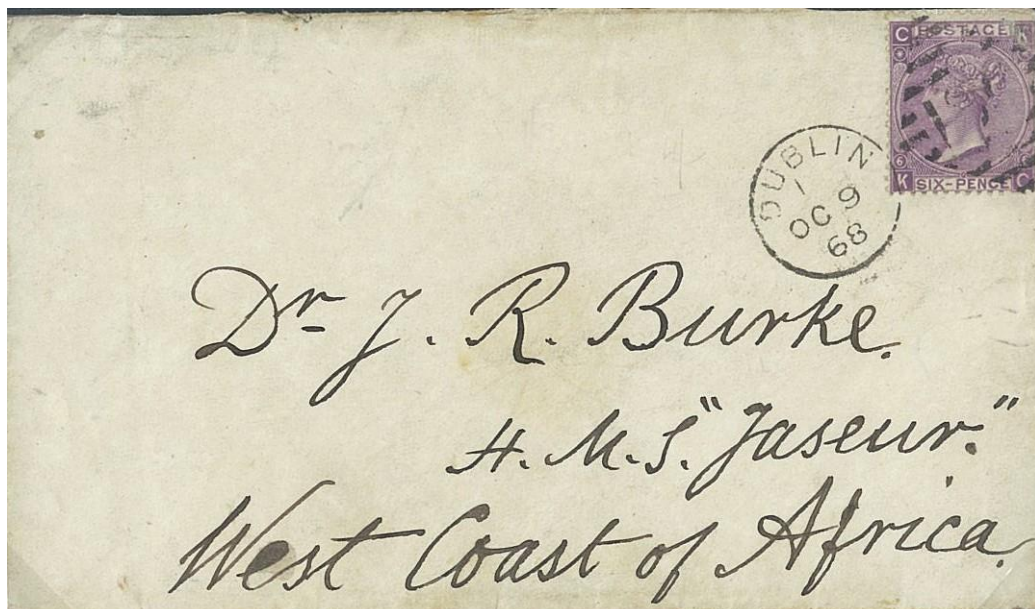 C POSTAGE K
6 6
K SIX-PENCE C
DUBLIN
1
OC 9
68
Dr J. R. Burke.
H. M. S. "Jaseur."
West Coast of Africa.